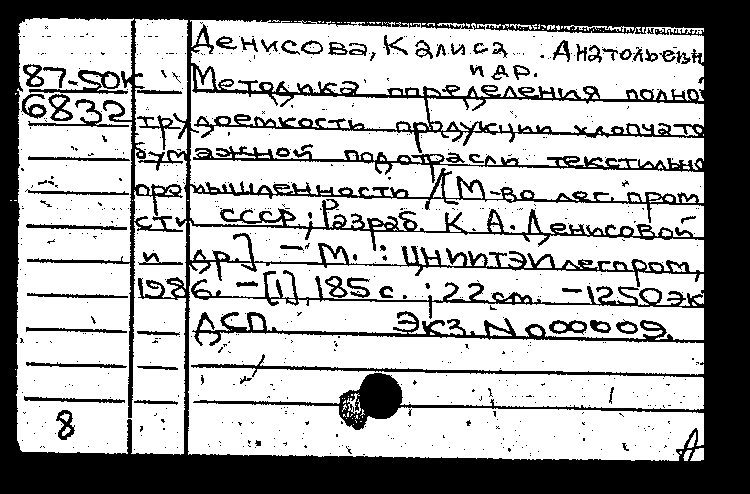 Денисова, Калиса Анатольевн
и др.
87-50к Методика определения полно
6832 трудоемкости продукции хлопчато
бумажной подотрасли текстильно
промышленности / [М-во лег. пром
сти СССР; Разраб. К. А. Денисовой
и др.]. – М. : ЦНИИТЭИлегпром,
1986. – [1], 185 с. ; 22 см. – 1250 эк
ДСП. Экз. N 000009.
8